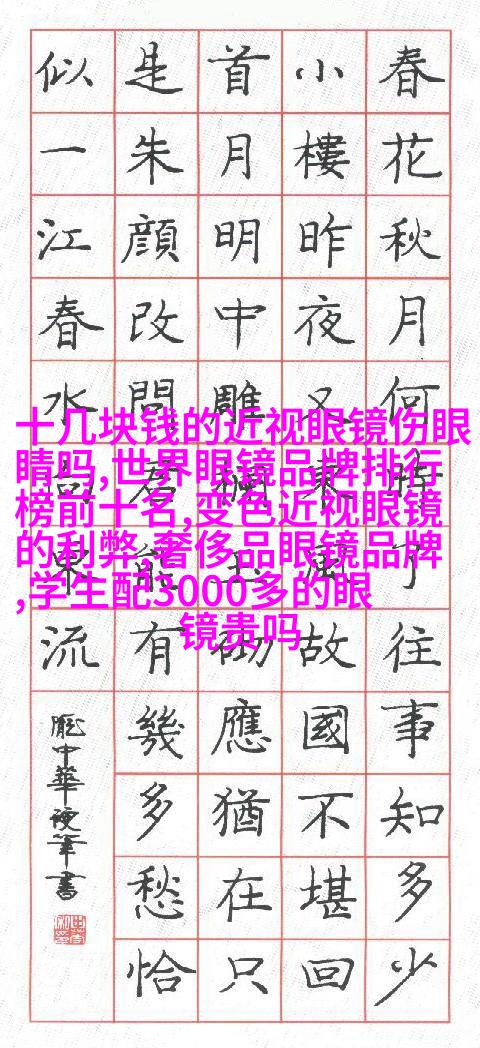 春花秋月何時了往事知多少
小樓昨夜又東風故國不堪回
首月明中雕欄玉砌應猶在只
是朱顔改問君能有幾多愁恰
似一江春水向東流
龐中華硬筆書
十几块钱的近视眼镜伤眼
睛吗,世界眼镜品牌排行
榜前十名,变色近视眼镜
的利弊,奢侈品眼镜品牌
,学生配3000多的眼
镜贵吗